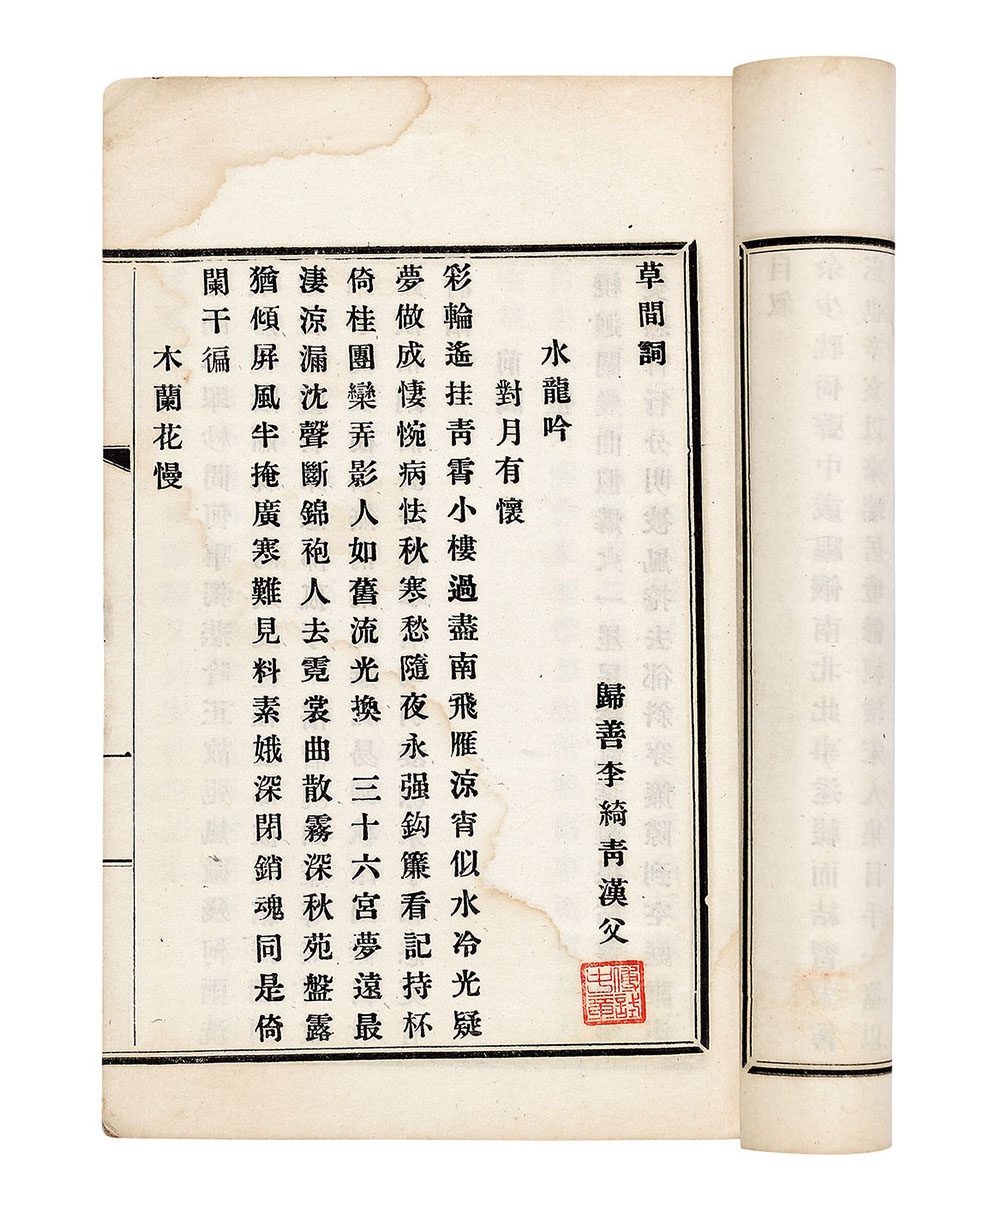 草間詞
歸善李綺青漢父
水龍吟
對月有懷
彩輪遙挂青霄小樓過盡南飛雁涼宵似水冷光疑
夢做成悽惋病怯秋寒愁隨夜永强鈎簾看記持杯
倚桂團欒弄影人如舊流光換　三十六宮夢遠最
淒涼漏沈聲斷錦袍人去霓裳曲散霧深秋苑盤露
猶傾屏風半掩廣寒難見料素娥深閉銷魂同是倚
闌干徧
木蘭花慢